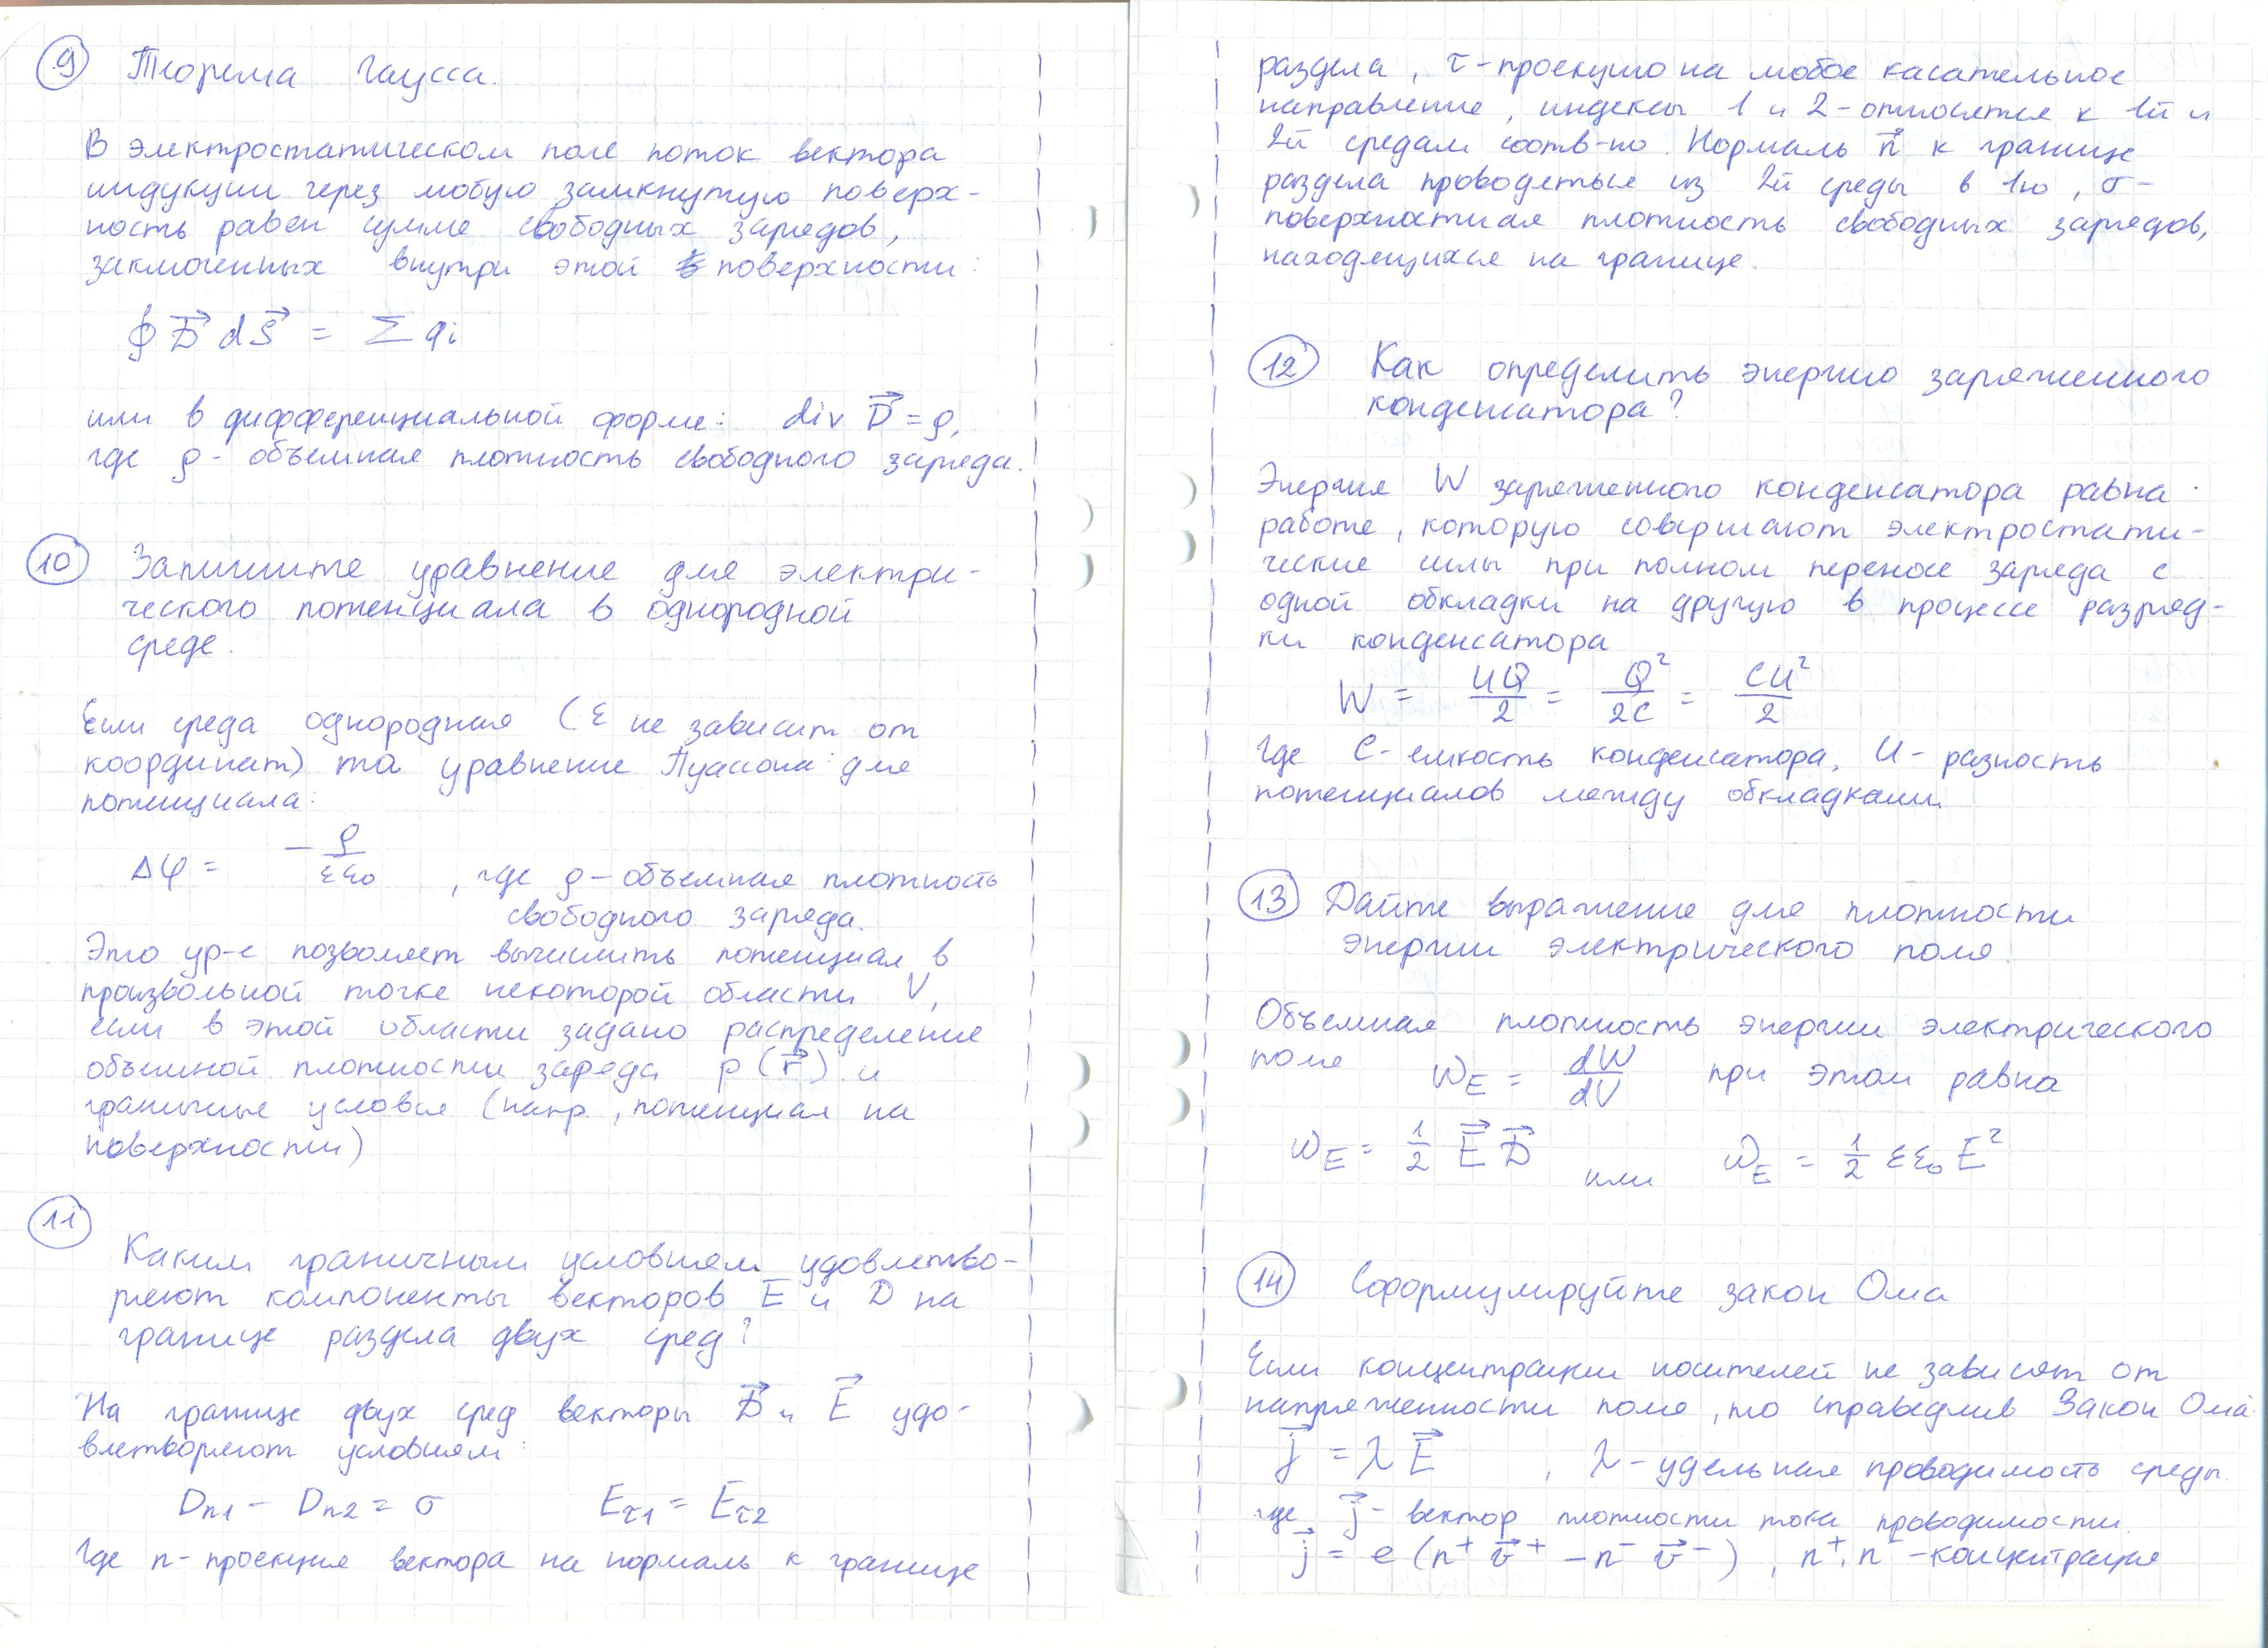 9 Теорема Гаусса.
В электростатическом поле поток вектора
индукции через любую замкнутую поверх-
ность равен сумме свободных зарядов,
заключенных внутри этой поверхности:
∮ D⃗ dS⃗ = Σ qi
или в дифференциальной форме: div D⃗ = ρ,
где ρ - объемная плотность свободного заряда.
10 Запишите уравнение для электри-
ческого потенциала в однородной
среде.
Если среда однородная (ε не зависит от
координат) то уравнение Пуассона для
потенциала:
Δφ = - ρ/εε₀ , где ρ - объемная плотность
свободного заряда.
Это ур-е позволяет вычислить потенциал в
произвольной точке некоторой области V,
если в этой области задано распределение
объемной плотности заряда ρ(r⃗) и
граничные условия (напр., потенциал на
поверхности)
11
Каким граничным условиям удовлетво-
ряют компоненты векторов E и D на
границе раздела двух сред?
На границе двух сред векторы D⃗ и E⃗ удо-
влетворяют условиям:
Dn1 - Dn2 = σ Eτ1 = Eτ2
Где n - проекция вектора на нормаль к границе
раздела, τ - проекцию на любое касательное
направление, индексы 1 и 2 - относятся к 1й и
2й средам соотв-но. Нормаль n⃗ к границе
раздела проводеться из 2й среды в 1ю, σ -
поверхностная плотность свободных зарядов,
находящихся на границе.
12 Как определить энергию заряженного
конденсатора?
Энергия W заряженного конденсатора равна
работе, которую совершают электростати-
ческие силы при полном переносе заряда с
одной обкладки на другую в процессе разряд-
ки конденсатора
W = UQ/2 = Q²/2C = CU²/2
Где C - емкость конденсатора, U - разность
потенциалов между обкладками
13 Дайте выражение для плотности
энергии электрического поля.
Объемная плотность энергии электрического
поля wE = dW/dV при этом равна
wE = 1/2 E⃗ D⃗ или wE = 1/2 εε₀ E²
14 Сформулируйте закон Ома
Если концентрации носителей не зависят от
напряженности поля, то справедлив Закон Ома:
j⃗ = λ E⃗ , λ - удельная проводимость среды.
где j⃗ - вектор плотности тока проводимости.
j⃗ = e (n⁺ v⃗⁺ - n⁻ v⃗⁻) , n⁺, n⁻ - концентрация